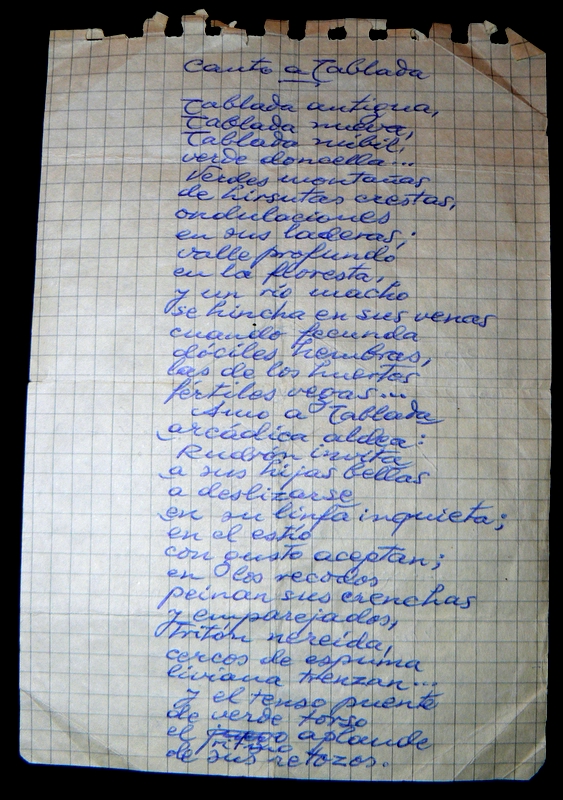 Canto a Tablada
Tablada antigua,
Tablada nueva,
Tablada núbil,
verde doncella...
Verdes montañas
de hirsutas crestas,
ondulaciones
en sus laderas;
valle profundo
en la floresta,
y un río macho
se hincha en sus venas
cuando fecunda
dóciles hembras,
las de los huertos
fértiles vegas...
Amo a Tablada
arcádica aldea:
Rudrón invita
a sus hijas bellas
a deslizarse
en su linfa inquieta;
en el estío
con gusto aceptan;
en los recodos
peinan sus crenchas
y emparejados,
Tritón nereida,
cercos de espuma
liviana trenzan...
y el tenso puente
de verde torso
el ritmo aplaude
de sus retozos.